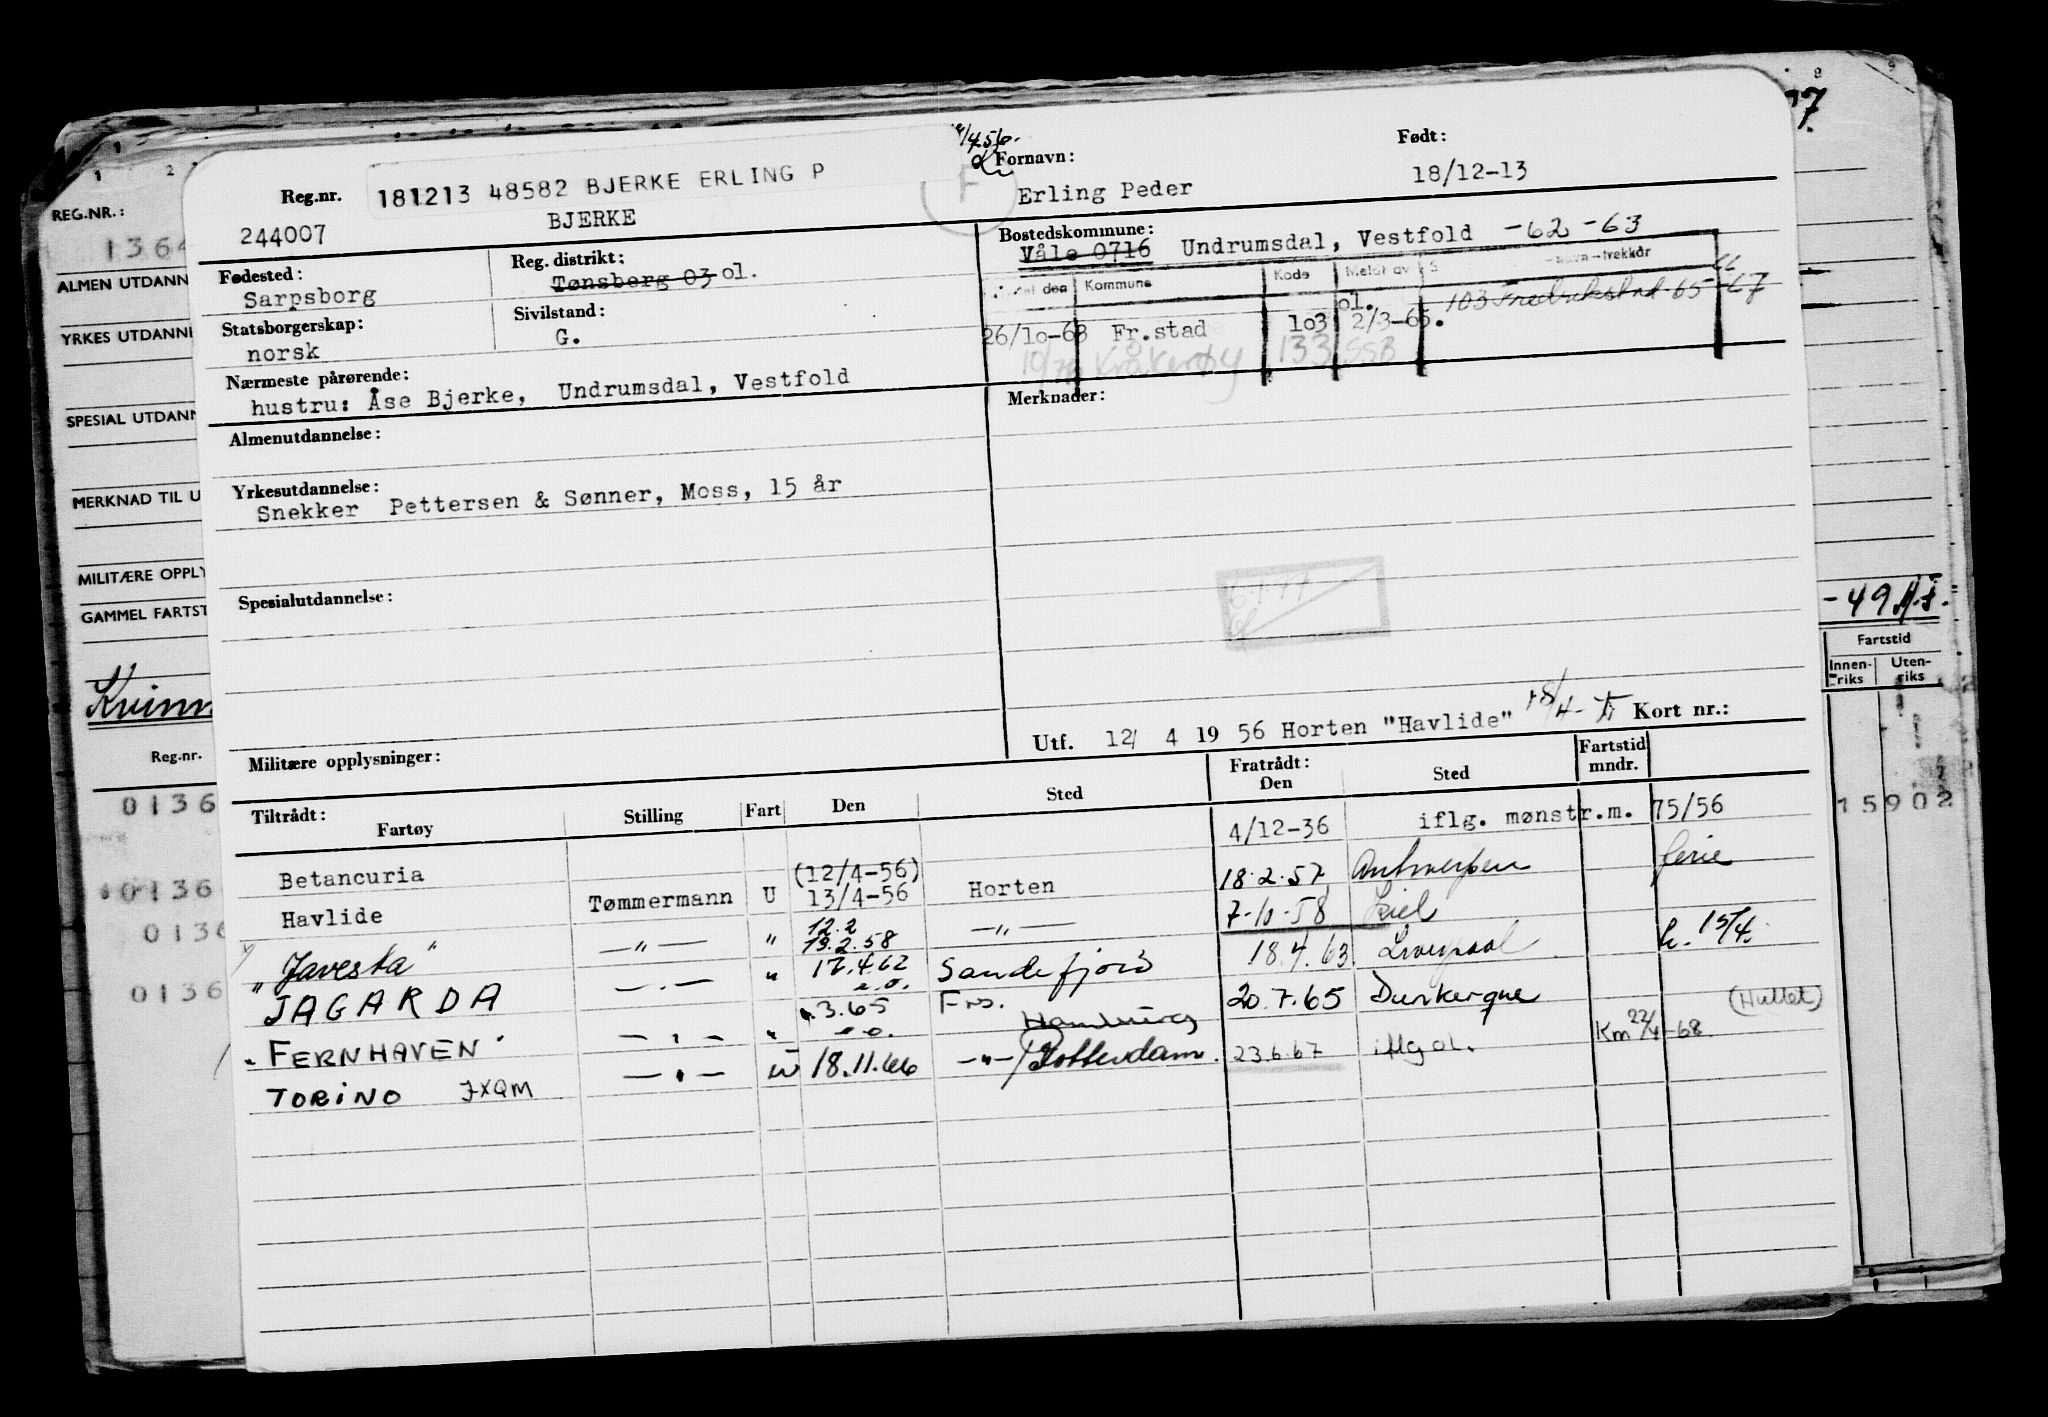 77.
4.56.
Reg.nr. 181213 48582 BJERKE ERLING P F Fornavn: Født:
244007 BJERKE Erling Peder 18/12-13
Fødested: Reg. distrikt: Bostedskommune:
Sarpsborg Tønsberg 03 ol. Våle 0716 Undrumsdal, Vestfold -62 -63
Statsborgerskap: Sivilstand: den Kommune Kode trekkår
norsk G. 26/10-63 Fr.stad 103 ol. 2/3-65. 103 Fredrikstad 65 -67
10/76 Kråkerøy 133 SSB
Nærmeste pårørende:
hustru: Åse Bjerke, Undrumsdal, Vestfold Merknader:
Almenutdannelse:
Yrkesutdannelse:
Snekker Pettersen & Sønner, Moss, 15 år
Spesialutdannelse:
Militære opplysninger: Utf. 12/ 4 19 56 Horten "Havlide" 18/4- Kort nr.:
Tiltrådt: Fratrådt: Fartstid
Fartøy Stilling Fart Den Sted Den Sted mndr.
Betancuria 4/12-36 iflg. mønstr.m. 75/56
Havlide Tømmermann U (12/4-56) 13/4-56 Horten 18.2.57 Antwerpen ferie
"Javesta" —"— " 12.2 19.2.58 —"— 7-10-58 Kiel
JAGARDA —.— " 17.4.62 Sandefjord 18.4.63. Liverpool h. 15/4.
"FERNHAVEN" —"— " 3.65 Hamburg 20.7.65 Dunkerque (Hullet)
TORINO JXQM —"— U 18.11.66 —"— Rotterdam. 23.6.67 iflg ol. Km 22/4-68.
REG.NR.:
1364
ALMEN UTDANN
YRKES UTDANNE
SPESIAL UTDANN
MERKNAD TIL U
MILITÆRE OPPLY
GAMMEL FARTST
Kvinn
Reg.nr.
0136
0136
0136
0136
-49
Fartstid
Innen-riks Uten-riks
15902